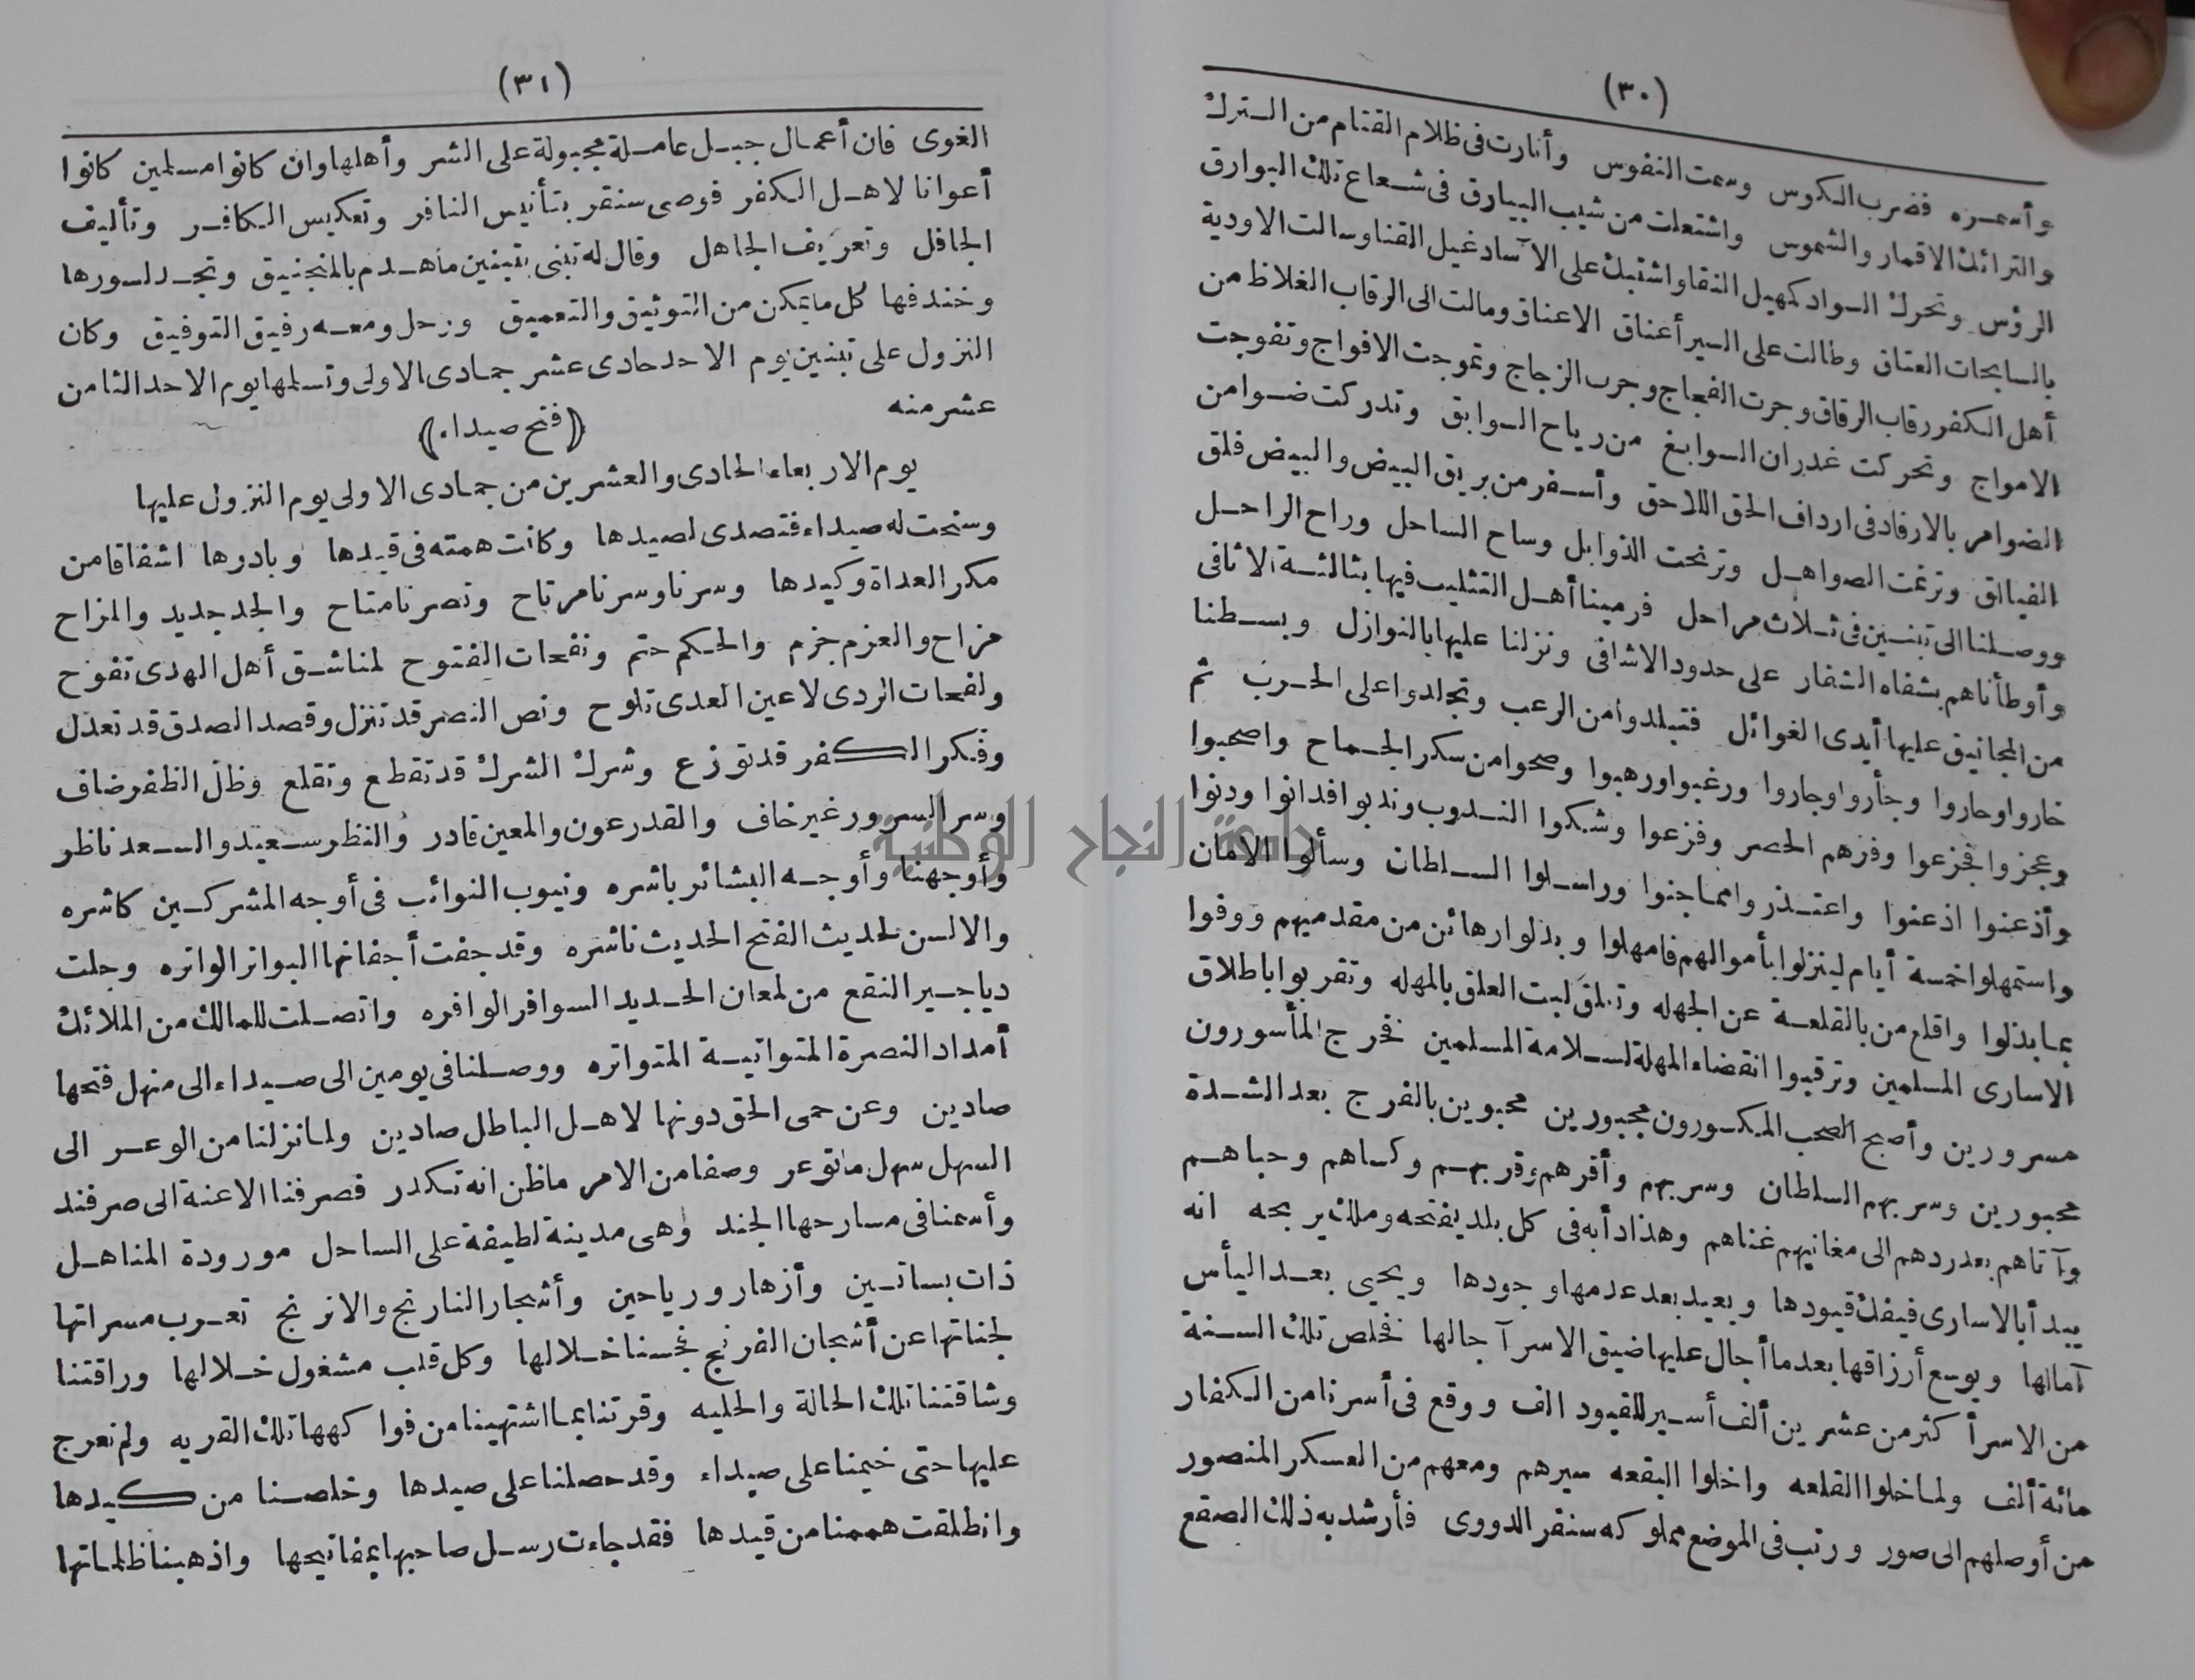 (٣٠)
وأسمره فضرب الكوس وسمت النفوس وأنارت فى ظلام القتام من الترك
والترائك الاقمار والشموس واشتعلت من شيب البيارق فى شعاع تلك البوارق
الرؤس وتحرك السواد كمهيل النقا واشتبك على الآساد غيل القنا وسالت الاودية
بالسابحات العتاق وطالت على السير أعناق الاعناق ومالت الى الرقاب الغلاظ من
أهل الكفر رقاب الرقاق وجرت الفجاج وجرب الزجاج وتموجت الافواج وتفوجت
الامواج وتحركت غدران السوابغ من رياح السوابق وتدركت ضوامن
الضوامر بالارفاد فى ارداف الحق اللاحق وأسفر من بريق البيض والبيض فلق
الفيالق وترغت الصواهل وترنحت الذوابل وساح الساحل وراح الراحل
ووصلنا الى تبنين فى ثلاث مراحل فرمينا أهل التثليب فيها بثالثة الاثافى
وأوطأناهم بشفاه الشفار على حدود الاشافى ونزلنا عليها بالنوازل وبسطنا
من المجانيق عليها أيدى الغوائل فتبلدوا من الرعب وتجالدوا على الحرب ثم
خاروا وحاروا وجأروا وجاروا ورغبوا ورهبوا وصحوا من سكر الجماح واصحبوا
وعجزوا فجزعوا وفزهم الحصر وفزعوا وشكوا الندوب وندبوا فدانوا ودنوا
وأذعنوا اذ عنوا واعتذروا مما جنوا وراسلوا السلطان وسألوا الامان
واستمهلوا خمسة أيام لينزلوا بأموالهم فامهلوا وبذلوا رهائن من مقدميهم ووفوا
بما بذلوا واقلع من بالقلعة عن الجهله وتعلق لبت العلق بالمهله وتقربوا باطلاق
الاسارى المسلمين وترقبوا انقضاء المهلة لسلامة المسلمين فخرج المأسورون
مسرورين وأصبح الصحب المكسورون مجبورين محبوين بالفرج بعد الشدة
محبورين وسر بهم السلطان وسربهم وأقرهم وقربهم وكساهم وحباهم
وآتاهم بعد ردهم الى مغانيهم غناهم وهذا دأبه فى كل بلد يفتحه وملك يربحه انه
يبدأ بالاسارى فيفك قيودها ويعيد بعد عدمها وجودها ويحيى بعد اليأس
آمالها ويوسع أرزاقها بعد ما أجال عليها ضيق الاسر آجالها فخلص تلك السنة
من الاسر أكثر من عشرين ألف أسير للقيود الف ووقع فى أسرنا من الكفار
مائة ألف ولما خلوا القلعه واخلوا البقعه سيرهم ومعهم من العسكر المنصور
من أوصلهم الى صور ورتب فى الموضع مملوكه سنقر الدووى فأرشد به ذلك الصقع
(٣١)
الغوى فان أعمال جبل عاملة مجبولة على الشر وأهلها وان كانوا مسلمين كانوا
أعوانا لاهل الكفر فوصى سنقر بتأنيس النافر وتعكيس الكافر وتأليف
الجافل وتعريف الجاهل وقال له تبنى بتبنين ما هدم بالمنجنيق وتجد لسورها
وخندقها كل ما يمكن من التوثيق والتعميق ورحل ومعه رفيق التوفيق وكان
النزول على تبنين يوم الاحد حادى عشر جمادى الاولى وتسلمها يوم الاحد الثامن
عشر منه
﴿فتح صيداء﴾
يوم الاربعاء الحادى والعشرين من جمادى الاولى يوم النزول عليها
وسنحت له صيداء فتصدى لصيدها وكانت همته فى قيدها وبادرها اشفاقا من
مكر العداة وكيدها وسرنا وسرنا مرتاح ونصرنا متاح والجد جديد والمزاح
مزاح والعزم جزم والحكم حتم ونفحات الفتوح لمناشق أهل الهدى تفوح
ولفحات الردى لاعين العدى تلوح ونص النصر قد تنزل وقصد الصدق قد تعدل
وفكر الكفر قد توزع وشرك الشرك قد تقطع وتقلع وظل الظفر ضاف
وسر السرور غير خاف والقدر عون والمعين قادر والنظر سعيد والسعد ناظر
وأوجهنا وأوجه البشائر باشره ونيوب النوائب فى أوجه المشركين كاشره
والالسن لحديث الفتح الحديث ناشره وقد جفت أجفانها البواتر الواتره وجلت
دياجير النقع من لمعان الحديد السوافر الوافره واتصلت للمالك من الملائك
أمداد النصرة المتواتية المتواتره ووصلنا فى يومين الى صيداء الى منهل فتحها
صادين وعن حمى الحق دونها لاهل الباطل صادين ولما نزلنا من الوعر الى
السهل سهل ما توعر وصفا من الامر ما ظن انه تكدر فصرفنا الاعنة الى صرفند
وأسمنا فى مسارحها الجند وهى مدينة لطيفة على الساحل مورودة المناهل
ذات بساتين وأزهار ورياحين وأشجار النارنج والاترنج تعرب مسراتها
لجناتها عن أشجان الفرنج فجسنا خلالها وكل قلب مشغول خلالها وراقتنا
وشاقتنا تلك الحالة والحليه وقرتنا بما اشتهينا من فواكهها تلك القريه ولم نعرج
عليها حتى خيمنا على صيداء وقد حصلنا على صيدها وخلصنا من كيدها
وانطلقت هممنا من قيدها فقد جاءت رسل صاحبها بمفاتيحها واذهبنا ظلماتها
جامعة النجاح الوطنية